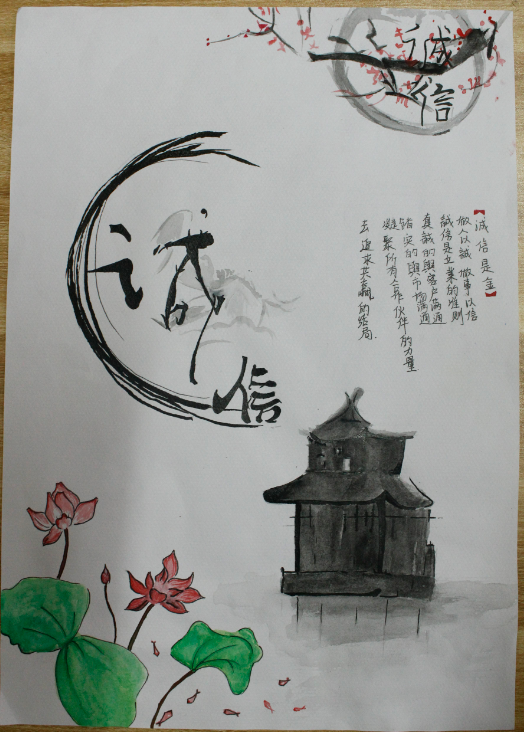 诚信
诚信
【诚信是金】
做人以誠 做事以信
誠信是立業的准则
真誠的與客户溝通
踏实的與市場溝通
凝聚所有合作伙伴的力量
去迎來共贏的结局.